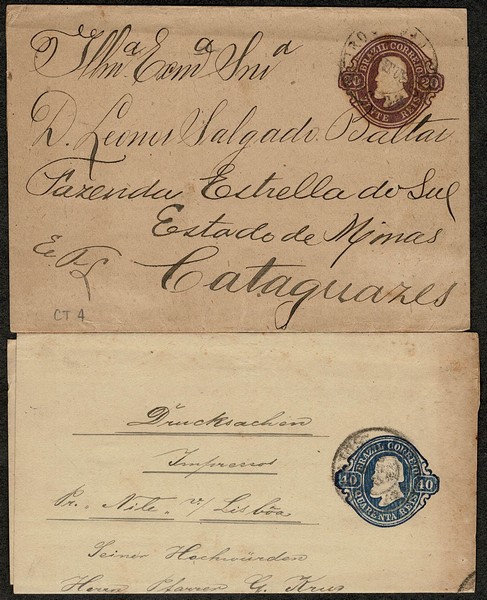 Illmª Exmª Snrª
D. Leonor Salgado Baltar
Fazenda Estrella do Sul
Estado de Minas
Cataguazes
CT 4
BRAZIL CORREIO
20 20
VINTE REIS
Drucksachen
Impressos
Pr. "Nile" v/ Lisbôa
Seiner Hochwürden
Herrn Pfarrer G. Krus
BRAZIL CORREIO
40 40
QUARENTA REIS